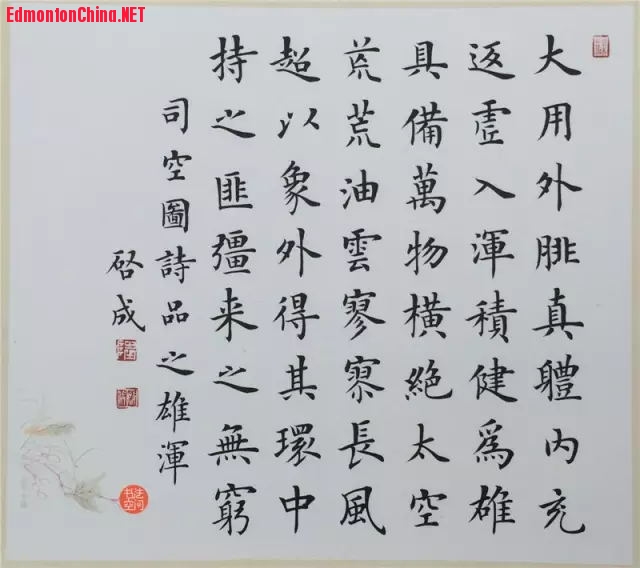 EdmontonChina.NET
大用外腓真體内充
返虛入渾積健爲雄
具備萬物橫絶太空
荒荒油雲寥寥長風
超以象外得其環中
持之匪彊来之無窮
司空圖詩品之雄渾
啓成